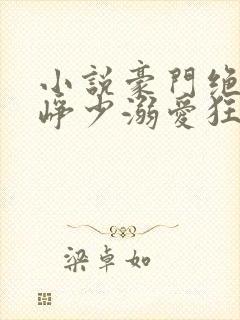 小說豪門絕
崢少溺愛狂
梁卓如